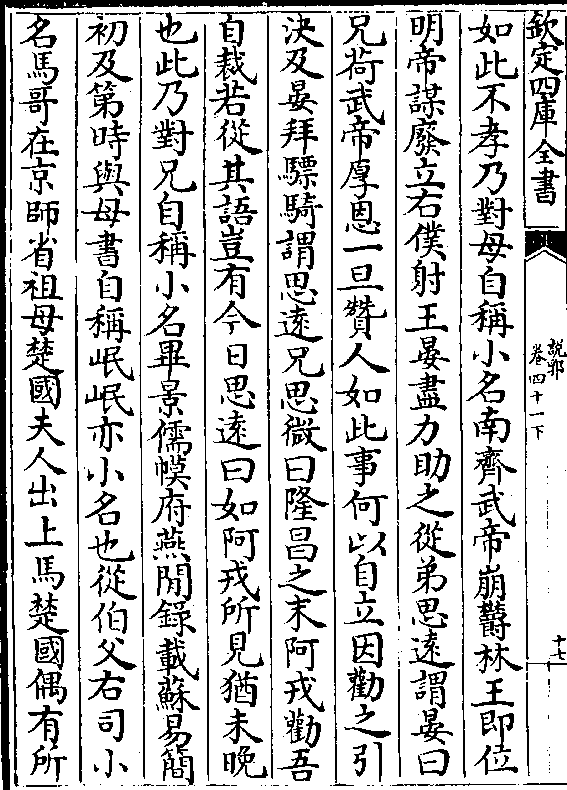 欽定四庫全書
說郛
卷四十一下
十七
如此不孝乃對母自稱小名南齊武帝崩鬱林王即位
明帝謀廢立右僕射王晏盡力助之從弟思遠謂晏曰
兄荷武帝厚恩一旦贊人如此事何以自立因勸之引
決及晏拜驃騎謂思遠兄思微曰隆昌之末阿戎勸吾
自裁若從其語豈有今日思遠曰如阿戎所見猶未晚
也此乃對兄自稱小名畢景儒幙府燕閒錄載蘇易簡
初及第時與母書自稱岷岷亦小名也從伯父右司小
名馬哥在京師省祖母楚國夫人出上馬楚國偶有所